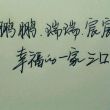 鹏鹏、瑞瑞、宸宸
幸福的一家三口